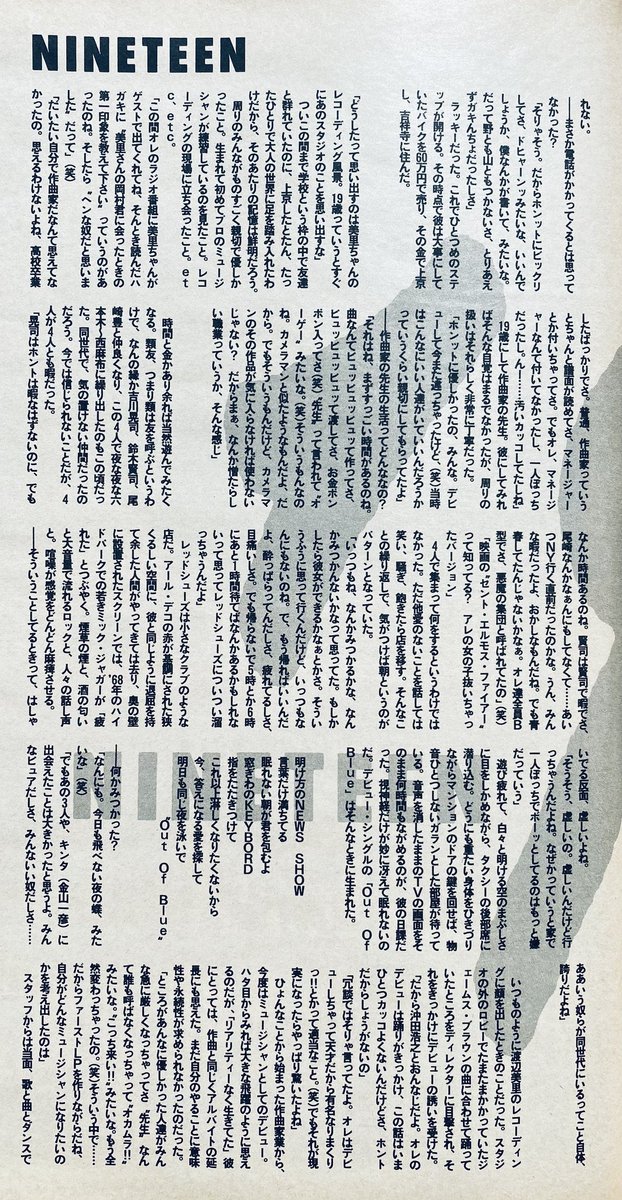 NINETEEN
れない。
――まさか電話がかかってくるとは思って
なかった？
「そりゃそう。だからホントにビックリ
してさ、ドヒャーンッみたいな、いいんで
しょうか、僕なんかが書いて、みたいな。
だって野とも山ともつかないさ、とりあえ
ずガキんちょだったしさ」
ラッキーだった。これでひとつめのステ
ップが開ける。その時点で彼は大事にして
いたバイクを60万円で売り、その金で上京
し、吉祥寺に住んだ。
「どうしたって思い出すのは美里ちゃんの
レコーディング風景。19歳っていうとすぐ
にあのスタジオのことを思い出すな」
つい この間まで学校という枠の中で友達
と群れていたのに、上京したとたん、たっ
たひとりで大人の世界に足を踏み入れたわ
けだから、そのあたりの記憶は鮮明だろう。
周りのみんながものすごく親切で優しか
ったこと。生まれて初めてプロのミュージ
シャンが練習しているのを見たこと。レコ
ーディングの現場に立ち会ったこと。et
c、etc。
「この間オレのラジオ番組に美里ちゃんが
ゲストで出てくれてね、そんとき読んだハ
ガキに〝美里さんの岡村君に会ったときの
第一印象を教えて下さい〟っていうのがあ
ったのね。そしたら〝ヘンな奴だと思いま
した〟だって」（笑）
「だいたい自分で作曲家だなんて思えてな
かったの。思えるわけないよね、高校卒業
したばっかりでさ。普通、作曲家っていう
とちゃんと譜面が読めてさ、マネージャー
とか付いちゃってさ。でもオレ、マネージ
ャーなんて付いてなかったし、一人ぼっち
だったし。ん！……汚いカッコしてたしね」
19歳にして作曲家の先生。彼にしてみれ
ばそんな自覚はまるでなかったが、周りの
扱いはそれらしく非常に丁寧だった。
「ホントに優しかったの、みんな。デビ
ューして今また違っちゃったけど（笑）当時
はこんなにいい人達がいていいんだろうか
っていうくらい親切にしてもらってたよ」
――作曲家の先生の生活ってどんなの？
「それはね、まずすっごい時間があるのね。
曲なんてピュッピュッピュッて作ってさ、
ピュッピュッピュッて渡してさ、お金ポン
ポン入ってさ（笑）〝先生〟って言われて〝オ
ーゲー〟みたいな。（笑）そういうもんなの
ね。カメラマンと似たようなもんだよ、だ
から。でもそういうもんだけど、カメラマ
ンのその作品が気に入らなければ使わない
じゃない？ だからまぁ、なんか憎たらし
い職業っていうか、そんな感じ」
時間と金があり余れば当然遊んでみたく
なる。類友、つまり類は友を呼ぶというわ
けで、なんの縁か吉川晃司、鈴木賢司、尾
崎豊と仲良くなり、この4人で夜な夜な六
本木～西麻布に繰り出したのもこの頃だっ
た。同世代で、気の置けない仲間だったの
だろう。今では信じられないことだが、4
人が4人とも暇だった。
「晃司はホントは暇なはずないのに、でも
なんか時間あるのね。賢司は賢司で暇でさ、
尾崎なんかなぁんにもしてなくて……あい
つNY行く直前だったのかな。うん、みん
な暇だったよ、おかしなもんだね。でも青
春してたんじゃないかなぁ。オレ達全員B
型でさ、悪魔の集団と呼ばれてたの」（笑）
「映画の『セント・エルモス・ファイアー』
って知ってる？ アレの女の子抜いちゃっ
たバージョン」
4人で集まって何をするというわけでは
なかった。ただ他愛のないことを話しては
笑い、騒ぎ、飽きたら店を移す。そんなこ
との繰り返しで、気がつけば朝というのが
パターンとなっていた。
「いっつもね、なんかみつかるかな、なん
かみつかんないかなって思ってた。もしか
したら彼女ができるかなぁとかさ。そうい
うふうに思って行くんだけど、いっつもな
んにもないのね。で、もう帰ればいいんだ
よ、酔っぱらってんだしさ、疲れてるしさ、
目痛いしさ。でも帰らないで5時とか6時
にあと1時間待てばなんかあるかもしれな
いって思ってレッドシューズについつい溜
っちゃうんだよ」
レッドシューズは小さなクラブのような
店だ。アール・デコの赤が基調にされた狭
くるしい空間に、彼と同じように退屈を持
て余した人間がやってきては去り、奥の壁
に設置されたスクリーンでは、'68年のハイ
ドパークでの若きミック・ジャガーが〝疲
れた〟とつぶやく。煙草の煙と、酒の匂い
と大音量で流れるロックと、人々の話し声
と。喧噪が感覚をどんどん麻痺させる。
――そういうことしてるときって、はしゃ
いでる反面、虚しいよね。
「そうそう、虚しいの。虚しいんだけど行
っちゃうんだよね。なぜかっていうと家で
一人ぼっちでボーッとしてるのはもっと嫌
だっていう」
遊び疲れて、白々と明ける空のまぶしさ
に目をしかめながら、タクシーの後部席に
滑り込む。どうにも重たい身体をひきづり
ながらマンションのドアの鍵を回せば、物
音ひとつしないガランとした部屋が待って
いる。音声を消したままのTVの画面をそ
のまま何時間もながめるのが、彼の日課だ
った。視神経だけが妙に冴えて眠れないの
だ。デビュー・シングルの〝Out Of
Blue〟はそんなときに生まれた。
明け方のNEWS SHOW
言葉だけ満ちてる
眠れない朝が君を包むよ
窓ぎわのKEYBORD
指をただきつけて
これ以上淋しくなりたくないから
今、答えになる愛を探して
明日も同じ夜を泳いで
〝Out Of Blue〟
――何かみつかった？
「なんにも。今日も飛べない夜の蝶、みた
いな」（笑）
「でもあの3人や、キンタ（金山一彦）に
出会えたことは大きかったと思うよ。みん
なピュアだしさ、みんないい奴だしさ……
ああいう奴らが同世代にいるってこと自体、
誇りだよね」
いつものように渡辺美里のレコーディン
グに顔を出したときのことだった。スタジ
オの外のロビーでたまたまかかっていたジ
ェームス・ブラウンの曲に合わせて踊って
いたところをディレクターに目撃され、そ
れをきっかけにデビューの誘いを受けた。
「だから沖田浩之とおんなじだよ。オレの
デビューは踊りがきっかけ、この話はいま
ひとつカッコよくないんだけどさ、ホント
だからしょうがないの」
「冗談ではそりゃ言ってたよ。オレはデビ
ューしちゃって天才だから有名なりまくり
っ!!とかって適当なこと。（笑）でもそれが現
実になったらやっぱり驚いたよね」
ひょんなことから始まった作曲家業から、
今度はミュージシャンとしてのデビュー。
ハタ目からみれば大きな飛躍のように思え
るのだが、「リアリティーなく生きてた」彼
にとっては、作曲と同じくアルバイトの延
長にも思えた。まだ自分のやることに意味
性や永続性が求められなかったのだった。
「ところがあんなに優しかった人達がみん
な急に厳しくなっちゃってさ、〝先生〟なん
て誰も呼ばなくなっちゃって〝オカムラ!!〟
みたいな。〝こっち来い!!〟みたいな。もう全
然変わっちゃったの。（笑）そういう中で……
だからファーストLPを作りながらだね、
自分がどんなミュージシャンになりたいの
かを考え出したのは」
スタッフからは当面、歌と曲とダンスで
NINETEEN